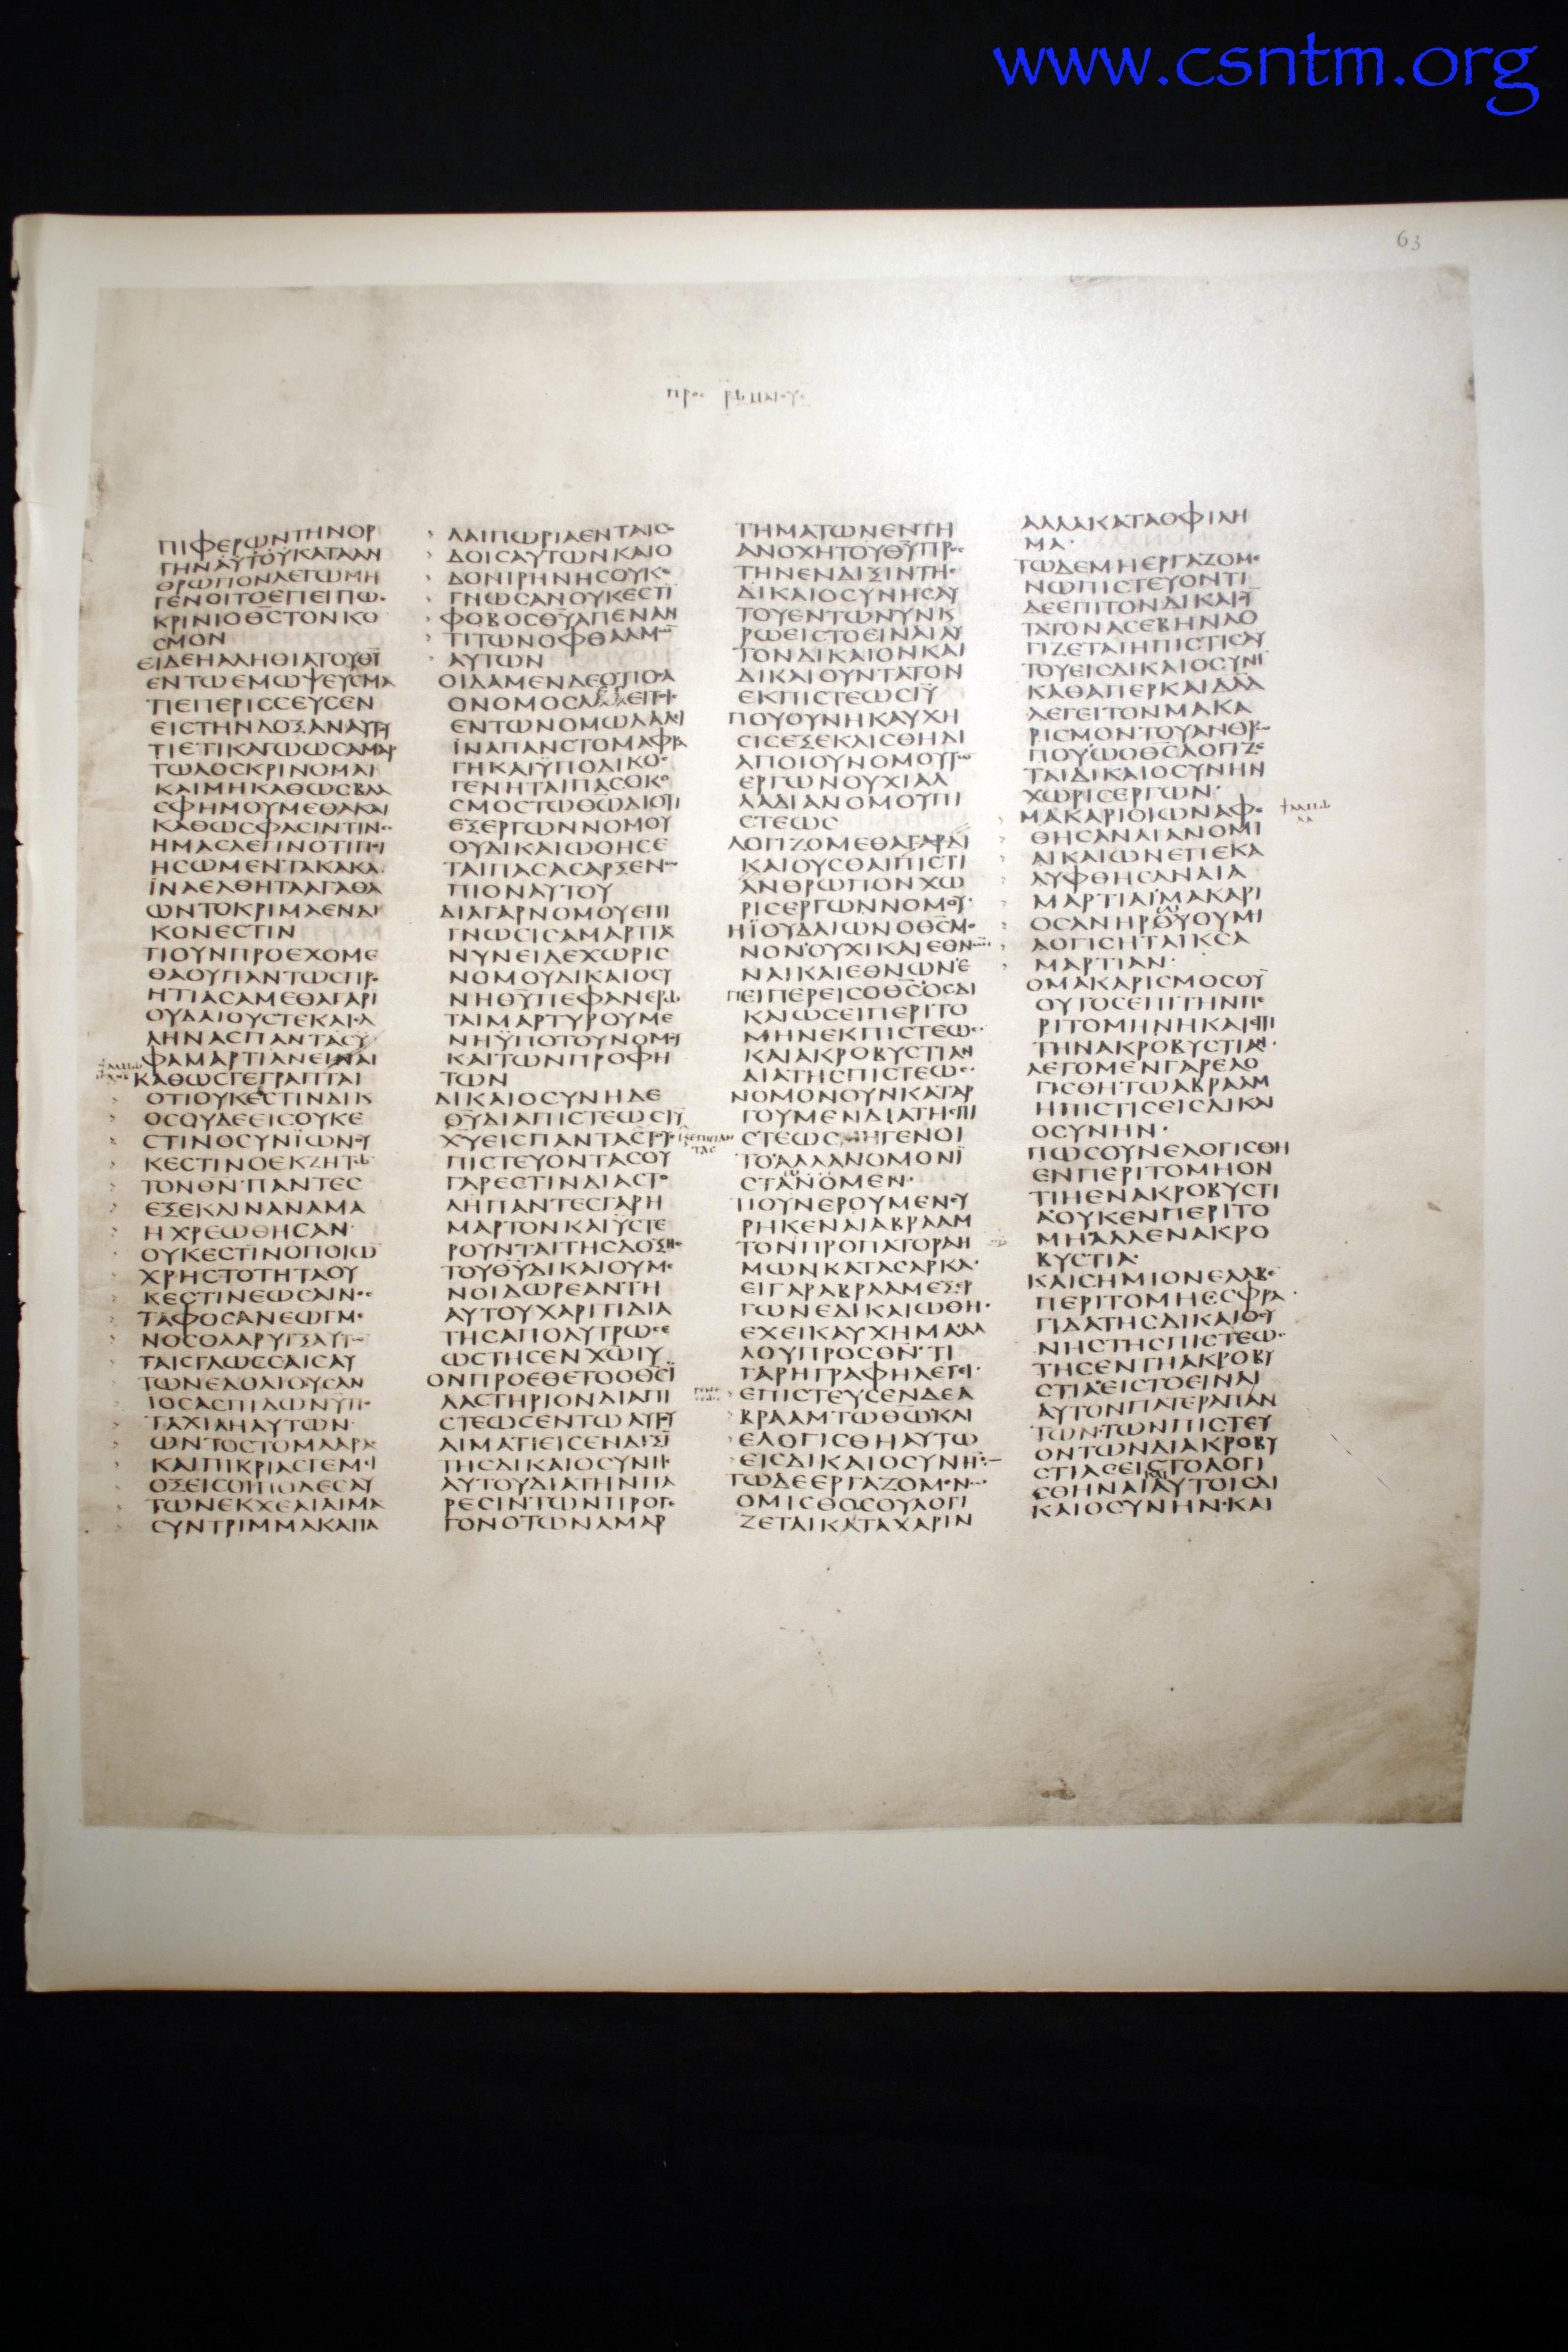 www.csntm.org
63
ΠΡΟΣ ΡΩΜΑΙΟΥΣ
ΠΙΦΕΡΩΝΤΗΝΟΡ
ΓΗΝΑΥΤΟΥΚΑΤΑΑΝ
ΘΡΩΠΟΝΛΕΓΩΜΗ
ΓΕΝΟΙΤΟΕΠΕΙΠΩΣ
ΚΡΙΝΙΟΘΣΤΟΝΚΟ
ΣΜΟΝ
ΕΙΔΕΗΑΛΗΘΙΑΤΟΥΘΥ
ΕΝΤΩΕΜΩΨΕΥΣΜΑ
ΤΙΕΠΕΡΙΣΣΕΥΣΕΝ
ΕΙΣΤΗΝΔΟΞΑΝΑΥΤΟΥ
ΤΙΕΤΙΚΑΓΩΩΣΑΜΑΡ
ΤΩΛΟΣΚΡΙΝΟΜΑΙ
ΚΑΙΜΗΚΑΘΩΣΒΛΑ
ΣΦΗΜΟΥΜΕΘΑΚΑΙ
ΚΑΘΩΣΦΑΣΙΝΤΙΝΕΣ
ΗΜΑΣΛΕΓΙΝΟΤΙΠΟΙ
ΗΣΩΜΕΝΤΑΚΑΚΑ
ΪΝΑΕΛΘΗΤΑΑΓΑΘΑ
ΩΝΤΟΚΡΙΜΑΕΝΔΙ
ΚΟΝΕΣΤΙΝ
ΤΙΟΥΝΠΡΟΕΧΟΜΕ
ΘΑΟΥΠΑΝΤΩΣΠΡΟ
ΗΤΙΑΣΑΜΕΘΑΓΑΡΙ
ΟΥΔΑΙΟΥΣΤΕΚΑΙΕΛ
ΛΗΝΑΣΠΑΝΤΑΣΥ
ΦΑΜΑΡΤΙΑΝΕΙΝΑΙ
ΚΑΘΩΣΓΕΓΡΑΠΤΑΙ
ΟΤΙΟΥΚΕΣΤΙΝΔΙΚ
ΟΣΟΥΔΕΕΙΣΟΥΚΕ
ΣΤΙΝΟΣΥΝΪΩΝΟΥ
ΚΕΣΤΙΝΟΕΚΖΗΤΩ
ΤΟΝΘΝΠΑΝΤΕΣ
ΕΞΕΚΛΙΝΑΝΑΜΑ
ΗΧΡΕΩΘΗΣΑΝ
ΟΥΚΕΣΤΙΝΟΠΟΙΩ
ΧΡΗΣΤΟΤΗΤΑΟΥ
ΚΕΣΤΙΝΕΩΣΕΝΟΣ
ΤΑΦΟΣΑΝΕΩΓΜΕ
ΝΟΣΟΛΑΡΥΓΞΑΥΤΩ
ΤΑΙΣΓΛΩΣΣΑΙΣΑΥ
ΤΩΝΕΔΟΛΙΟΥΣΑΝ
ΙΟΣΑΣΠΙΔΩΝΥΠΟ
ΤΑΧΙΛΗΑΥΤΩΝ
ΩΝΤΟΣΤΟΜΑΑΡΑΣ
ΚΑΙΠΙΚΡΙΑΣΓΕΜΕΙ
ΟΞΕΙΣΟΙΠΟΔΕΣΑΥ
ΤΩΝΕΚΧΕΑΙΑΙΜΑ
ΣΥΝΤΡΙΜΜΑΚΑΙΤΑ
ΛΑΙΠΩΡΙΑΕΝΤΑΙΣΟ
ΔΟΙΣΑΥΤΩΝΚΑΙΟ
ΔΟΝΙΡΗΝΗΣΟΥΚΕ
ΓΝΩΣΑΝΟΥΚΕΣΤΙ
ΦΟΒΟΣΘΥΑΠΕΝΑΝ
ΤΙΤΩΝΟΦΘΑΛΜΩ
ΑΥΤΩΝ
ΟΙΔΑΜΕΝΔΕΟΤΙΟΣΑ
ΟΝΟΜΟΣΛΕΓΕΙΤΟΙΣ
ΕΝΤΩΝΟΜΩΛΑΛΕΙ
ΪΝΑΠΑΝΣΤΟΜΑΦΡΑ
ΓΗΚΑΙΫΠΟΔΙΚΟΣ
ΓΕΝΗΤΑΙΠΑΣΟΚΟ
ΣΜΟΣΤΩΘΩΔΙΟΤΙ
ΕΞΕΡΓΩΝΝΟΜΟΥ
ΟΥΔΙΚΑΙΩΘΗΣΕ
ΤΑΙΠΑΣΑΣΑΡΞΕΝΩ
ΠΙΟΝΑΥΤΟΥ
ΔΙΑΓΑΡΝΟΜΟΥΕΠΙ
ΓΝΩΣΙΣΑΜΑΡΤΙΑΣ
ΝΥΝΕΙΔΕΧΩΡΙΣ
ΝΟΜΟΥΔΙΚΑΙΟΣΥ
ΝΗΘΥΠΕΦΑΝΕΡΩ
ΤΑΙΜΑΡΤΥΡΟΥΜΕ
ΝΗΫΠΟΤΟΥΝΟΜΟΥ
ΚΑΙΤΩΝΠΡΟΦΗ
ΤΩΝ
ΔΙΚΑΙΟΣΥΝΗΔΕ
ΘΥΔΙΑΠΙΣΤΕΩΣΙΥ
ΧΥΕΙΣΠΑΝΤΑΣΤΟΥΣ
ΠΙΣΤΕΥΟΝΤΑΣΟΥ
ΓΑΡΕΣΤΙΝΔΙΑΣΤΟ
ΛΗΠΑΝΤΕΣΓΑΡΗ
ΜΑΡΤΟΝΚΑΙΫΣΤΕ
ΡΟΥΝΤΑΙΤΗΣΔΟΞΗΣ
ΤΟΥΘΥΔΙΚΑΙΟΥΜΕ
ΝΟΙΔΩΡΕΑΝΤΗ
ΑΥΤΟΥΧΑΡΙΤΙΔΙΑ
ΤΗΣΑΠΟΛΥΤΡΩΣΕ
ΩΣΤΗΣΕΝΧΩΙΥ
ΟΝΠΡΟΕΘΕΤΟΟΘΣΪ
ΛΑΣΤΗΡΙΟΝΔΙΑΠΙ
ΣΤΕΩΣΕΝΤΩΑΥΤΟΥ
ΑΙΜΑΤΙΕΙΣΕΝΔΙΞΙ
ΤΗΣΔΙΚΑΙΟΣΥΝΗΣ
ΑΥΤΟΥΔΙΑΤΗΝΠΑ
ΡΕΣΙΝΤΩΝΠΡΟΓΕ
ΓΟΝΟΤΩΝΑΜΑΡ
ΤΗΜΑΤΩΝΕΝΤΗ
ΑΝΟΧΗΤΟΥΘΥΠΡΟΣ
ΤΗΝΕΝΔΙΞΙΝΤΗΣ
ΔΙΚΑΙΟΣΥΝΗΣΑΥ
ΤΟΥΕΝΤΩΝΥΝΚΑΙ
ΡΩΕΙΣΤΟΕΙΝΑΙΑΥ
ΤΟΝΔΙΚΑΙΟΝΚΑΙ
ΔΙΚΑΙΟΥΝΤΑΤΟΝ
ΕΚΠΙΣΤΕΩΣΙΥ
ΠΟΥΟΥΝΗΚΑΥΧΗ
ΣΙΣΕΞΕΚΛΙΣΘΗΔΙ
ΑΠΟΙΟΥΝΟΜΟΥΤΩ
ΕΡΓΩΝΟΥΧΙΑΛ
ΛΑΔΙΑΝΟΜΟΥΠΙ
ΣΤΕΩΣ
ΛΟΓΙΖΟΜΕΘΑΓΑΡΔΙ
ΚΑΙΟΥΣΘΑΙΠΙΣΤΙ
ΑΝΘΡΩΠΟΝΧΩ
ΡΙΣΕΡΓΩΝΝΟΜΟΥ
ΗΪΟΥΔΑΙΩΝΟΘΣΜΟ
ΝΟΝΟΥΧΙΚΑΙΕΘΝΩ
ΝΑΙΚΑΙΕΘΝΩΝΕ
ΠΕΙΠΕΡΕΙΣΟΘΣΟΣΔΙ
ΚΑΙΩΣΕΙΠΕΡΙΤΟ
ΜΗΝΕΚΠΙΣΤΕΩΣ
ΚΑΙΑΚΡΟΒΥΣΤΙΑΝ
ΔΙΑΤΗΣΠΙΣΤΕΩΣ
ΝΟΜΟΝΟΥΝΚΑΤΑΡ
ΓΟΥΜΕΝΔΙΑΤΗΣΠΙ
ΣΤΕΩΣΜΗΓΕΝΟΙ
ΤΟΑΛΛΑΝΟΜΟΝΪ
ΣΤΑΝΟΜΕΝ
ΤΙΟΥΝΕΡΟΥΜΕΝΕΥ
ΡΗΚΕΝΑΙΑΒΡΑΑΜ
ΤΟΝΠΡΟΠΑΤΟΡΑΗ
ΜΩΝΚΑΤΑΣΑΡΚΑ
ΕΙΓΑΡΑΒΡΑΑΜΕΞΕΡ
ΓΩΝΕΔΙΚΑΙΩΘΗ
ΕΧΕΙΚΑΥΧΗΜΑΑΛ
ΛΟΥΠΡΟΣΘΝΤΙ
ΓΑΡΗΓΡΑΦΗΛΕΓΕΙ
ΕΠΙΣΤΕΥΣΕΝΔΕΑ
ΒΡΑΑΜΤΩΘΩΚΑΙ
ΕΛΟΓΙΣΘΗΑΥΤΩ
ΕΙΣΔΙΚΑΙΟΣΥΝΗΝ
ΤΩΔΕΕΡΓΑΖΟΜΕΝΩ
ΟΜΙΣΘΟΣΟΥΛΟΓΙ
ΖΕΤΑΙΚΑΤΑΧΑΡΙΝ
ΑΛΛΑΚΑΤΑΟΦΙΛΗ
ΜΑ
ΤΩΔΕΜΗΕΡΓΑΖΟΜΕ
ΝΩΠΙΣΤΕΥΟΝΤΙ
ΔΕΕΠΙΤΟΝΔΙΚΑΙΟΥ
ΤΑΤΟΝΑΣΕΒΗΝΛΟ
ΓΙΖΕΤΑΙΗΠΙΣΤΙΣΑΥ
ΤΟΥΕΙΣΔΙΚΑΙΟΣΥΝΗ
ΚΑΘΑΠΕΡΚΑΙΔΑΔ
ΛΕΓΕΙΤΟΝΜΑΚΑ
ΡΙΣΜΟΝΤΟΥΑΝΘΡΩ
ΠΟΥΩΟΘΣΛΟΓΙΖΕ
ΤΑΙΔΙΚΑΙΟΣΥΝΗΝ
ΧΩΡΙΣΕΡΓΩΝ
ΜΑΚΑΡΙΟΙΩΝΑΦΕ
ΘΗΣΑΝΑΙΑΝΟΜΙ
ΑΙΚΑΙΩΝΕΠΕΚΑ
ΛΥΦΘΗΣΑΝΑΙΑ
ΜΑΡΤΙΑΙΜΑΚΑΡΙ
ΟΣΑΝΗΡΟΥΟΥΜΙ
ΛΟΓΙΣΗΤΑΙΚΣΑ
ΜΑΡΤΙΑΝ
ΟΜΑΚΑΡΙΣΜΟΣΟΥ
ΟΥΤΟΣΕΠΙΤΗΝΠΕ
ΡΙΤΟΜΗΝΗΚΑΙΕΠΙ
ΤΗΝΑΚΡΟΒΥΣΤΙΑΝ
ΛΕΓΟΜΕΝΓΑΡΕΛΟ
ΓΙΣΘΗΤΩΑΒΡΑΑΜ
ΗΠΙΣΤΙΣΕΙΣΔΙΚΑΙ
ΟΣΥΝΗΝ
ΠΩΣΟΥΝΕΛΟΓΙΣΘΗ
ΕΝΠΕΡΙΤΟΜΗΟΝ
ΤΙΗΕΝΑΚΡΟΒΥΣΤΙ
ΑΟΥΚΕΝΠΕΡΙΤΟ
ΜΗΑΛΛΕΝΑΚΡΟ
ΒΥΣΤΙΑ
ΚΑΙΣΗΜΙΟΝΕΛΑΒΕ
ΠΕΡΙΤΟΜΗΣΣΦΡΑ
ΓΙΔΑΤΗΣΔΙΚΑΙΟΣΥ
ΝΗΣΤΗΣΠΙΣΤΕΩΣ
ΤΗΣΕΝΤΗΑΚΡΟΒΥ
ΣΤΙΑΕΙΣΤΟΕΙΝΑΙ
ΑΥΤΟΝΠΑΤΕΡΑΠΑΝ
ΤΩΝΤΩΝΠΙΣΤΕΥ
ΟΝΤΩΝΔΙΑΚΡΟΒΥ
ΣΤΙΑΣΕΙΣΤΟΛΟΓΙ
ΣΘΗΝΑΙΑΥΤΟΙΣΔΙ
ΚΑΙΟΣΥΝΗΝΚΑΙ